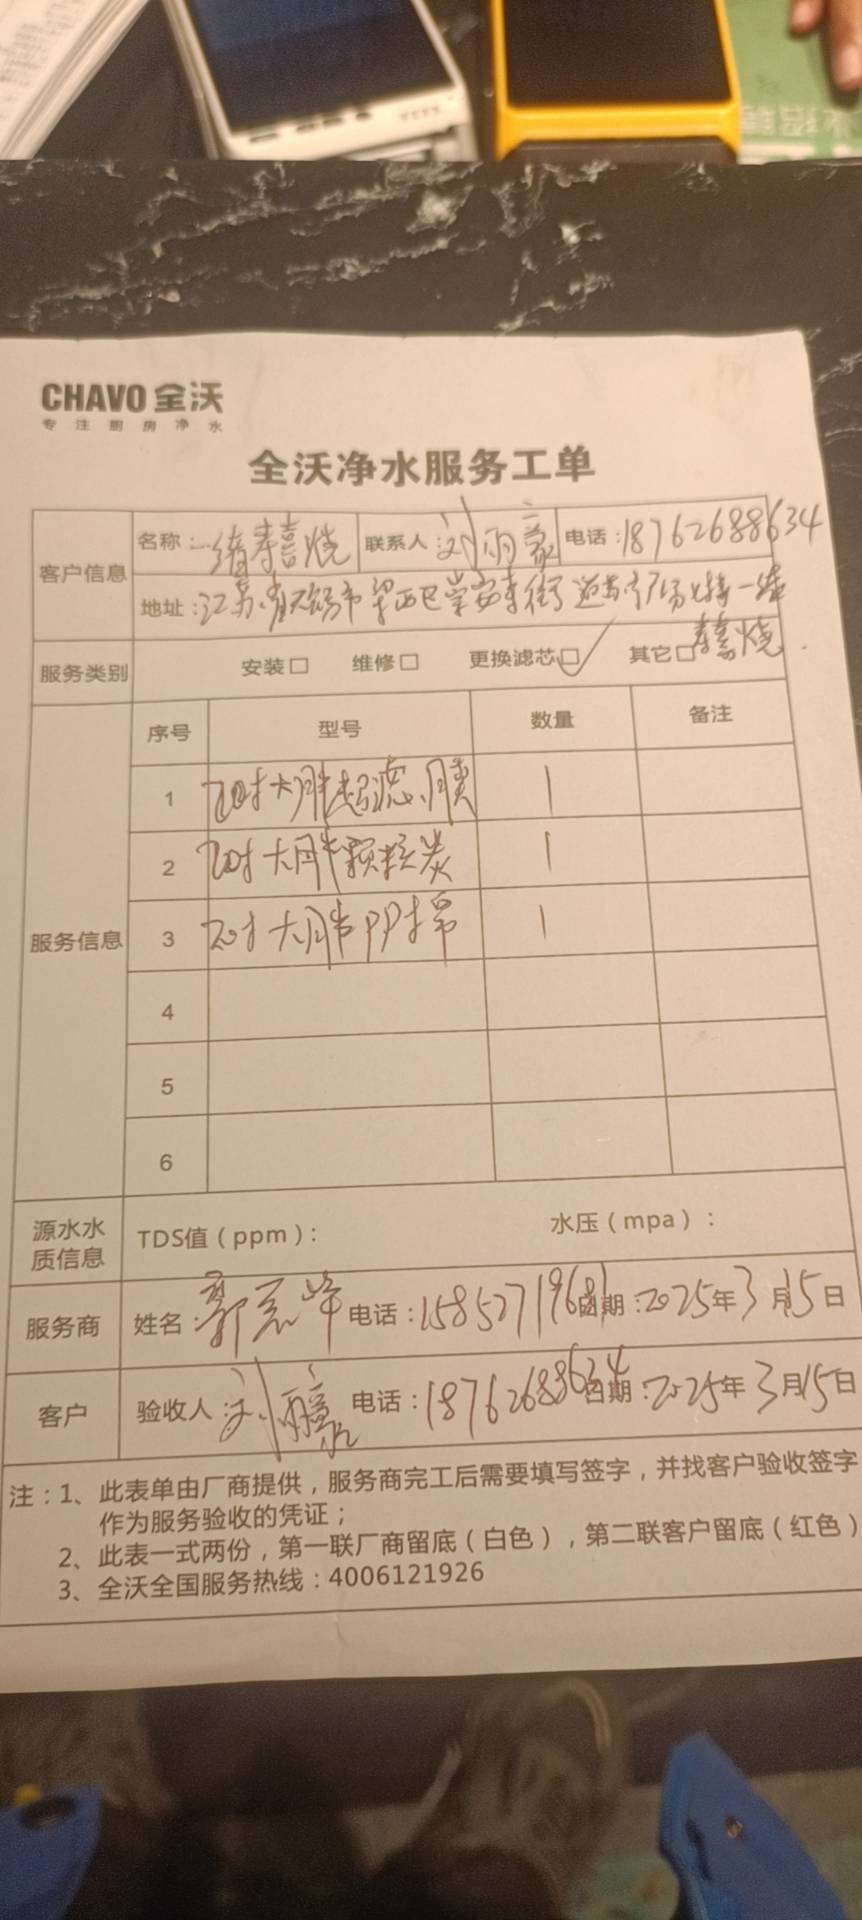 CHAVO 全沃
专注厨房净水
全沃净水服务工单
客户信息
名称：一绪寿喜烧 联系人：刘雨豪 电话：18762688634
地址：江苏省无锡市梁溪区崇安寺街道 广场 楼一绪
寿喜烧
服务类别 安装□ 维修□ 更换滤芯□✓ 其它□
服务信息
序号 型号 数量 备注
1 20寸大胖超滤膜 1
2 20寸大胖颗粒炭 1
3 20寸大胖PP棉 1
4
5
6
源水水质信息 TDS值（ppm）： 水压（mpa）：
服务商 姓名：郭志峰 电话：15852719681 日期：2025年3月15日
客户 验收人：刘雨豪 电话：18762688634 日期：2025年3月15日
注：1、此表单由厂商提供，服务商完工后需要填写签字，并找客户验收签字
作为服务验收的凭证；
2、此表一式两份，第一联厂商留底（白色），第二联客户留底（红色）
3、全沃全国服务热线：4006121926